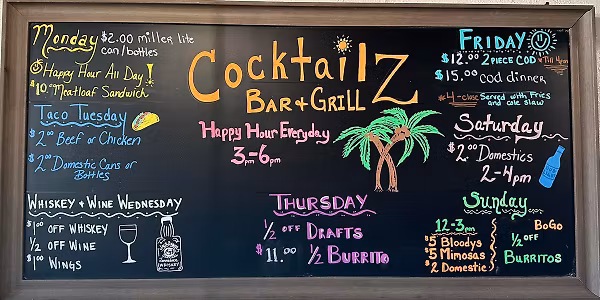 Monday $2.00 miller lite
can/bottles
Happy Hour All Day!
$10.00 Meatloaf Sandwich
Taco Tuesday
$2.00 Beef or Chicken
$2.00 Domestic Cans or
Bottles
Whiskey + Wine Wednesday
$1.00 off Whiskey
1/2 off Wine
$1.00 Wings
CocktailZ
Bar + Grill
Happy Hour Everyday
3pm-6pm
Thursday
1/2 off Drafts
$11.00 1/2 Burrito
Friday
$12.00 2 piece Cod *Till 4pm
$15.00 Cod dinner
*4-close Served with Fries
and cole slaw
Saturday
$2.00 Domestics
2-4pm
Sunday
12-3pm
$5 Bloodys
$5 Mimosas
$2 Domestic
BoGo
1/2 off
Burritos